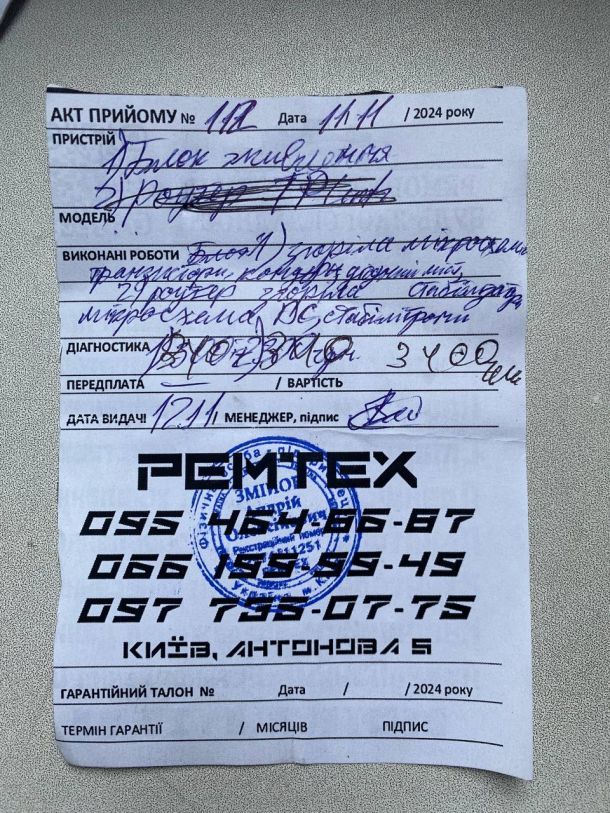 АКТ ПРИЙОМУ № 112 Дата 11.11 / 2024 року
ПРИСТРІЙ 1) Блок живлення
2) Роутер
МОДЕЛЬ
ВИКОНАНІ РОБОТИ Блок 1) згоріла мікросхема
транзистори,
2) роутер згоріла
мікросхема, DC, стабілітрони
ДІАГНОСТИКА 3400
ПЕРЕДПЛАТА / ВАРТІСТЬ
ДАТА ВИДАЧІ 12.11 / МЕНЕДЖЕР, підпис
РЕМТЕХ
095 464-86-87
066 199-99-49
097 795-07-75
КИЇВ, АНТОНОВА 5
Фізична особа - підприємець
ЗМІЙОВ
Андрій
Олексійович
Реєстраційний номер
Україна
ГАРАНТІЙНИЙ ТАЛОН № Дата / / 2024 року
ТЕРМІН ГАРАНТІЇ / МІСЯЦІВ ПІДПИС